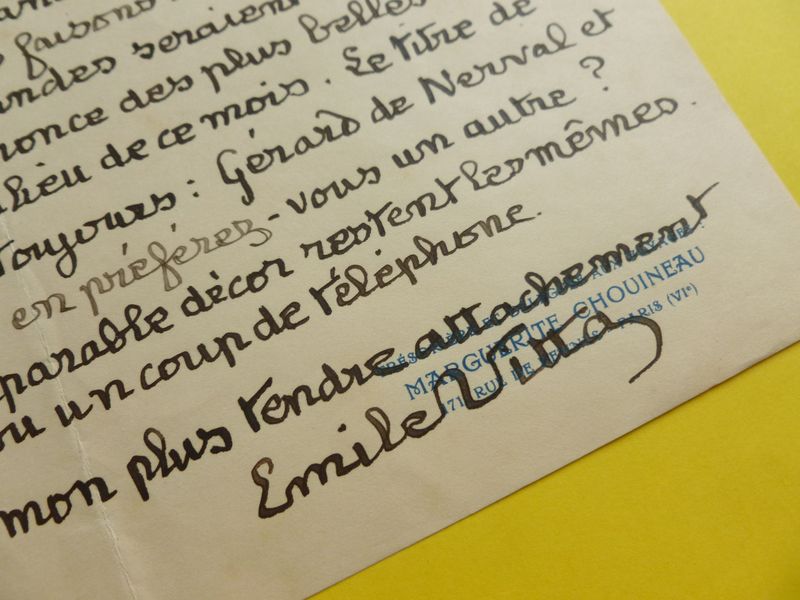 faisons
seraient
once des plus belles
lieu de ce mois. Le titre de
toujours : Gérard de Nerval et
en préférez-vous un autre ?
parable décor restent les mêmes.
ou un coup de téléphone.
mon plus tendre attachement
Emile Vitta
MARGUERITE CHOUINEAU
171, RUE DE RENNES, PARIS (VIe)